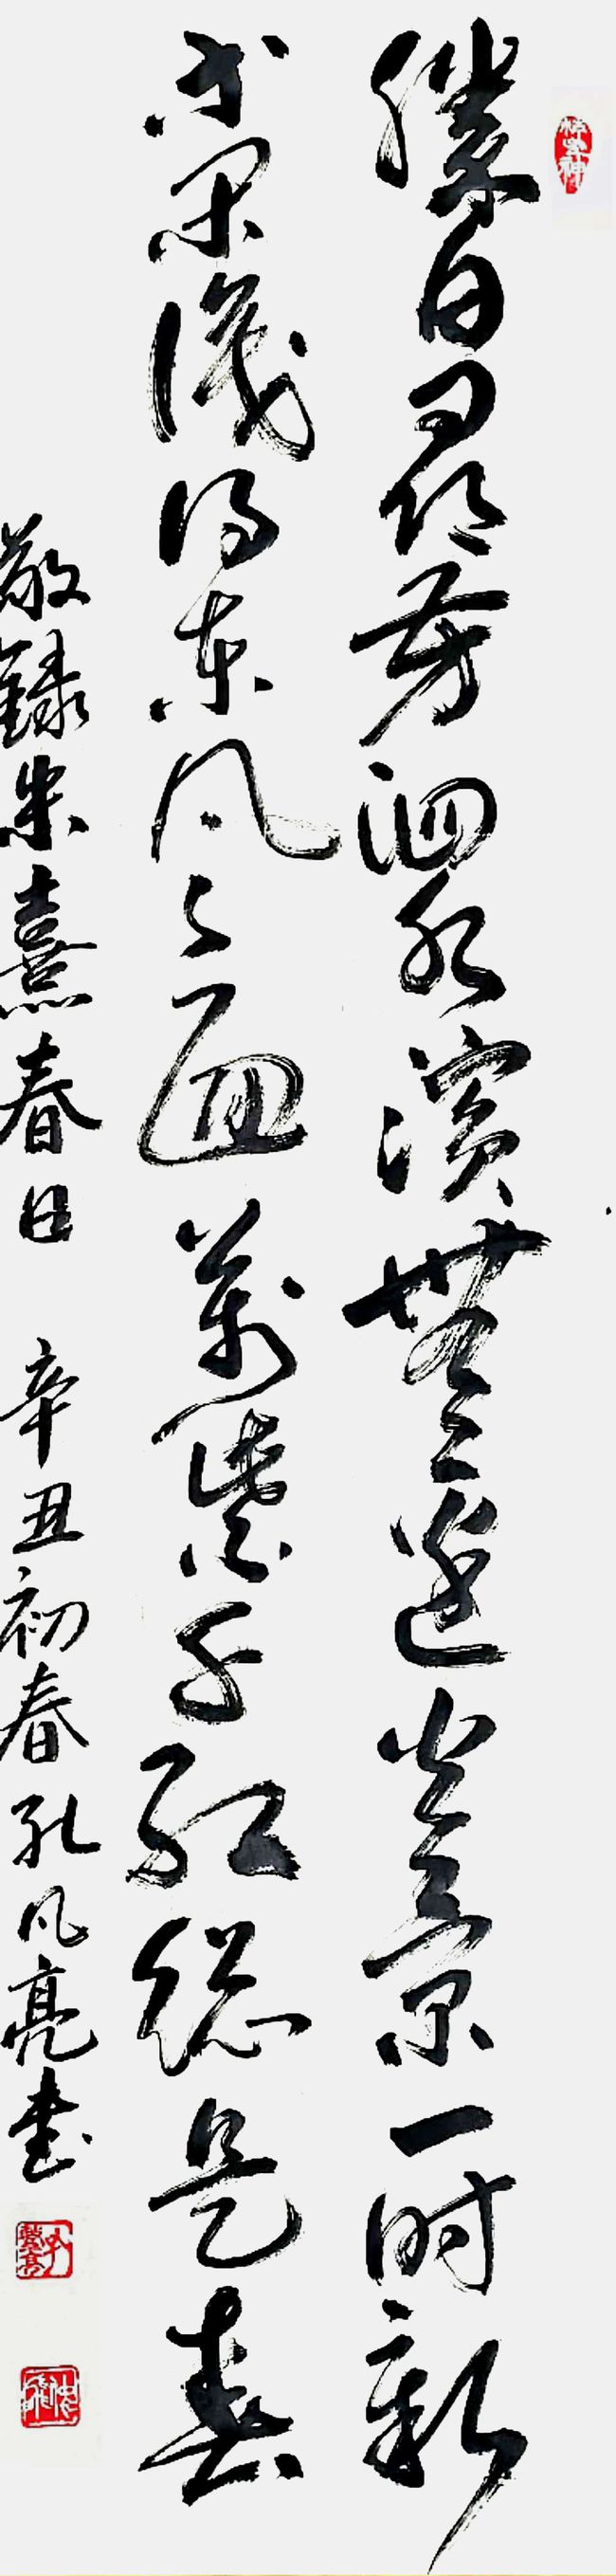 勝日尋芳泗水濱無邊光景一時新
等閒識得東風面萬紫千紅總是春
敬録朱熹春日 辛丑初春孔凡亮書